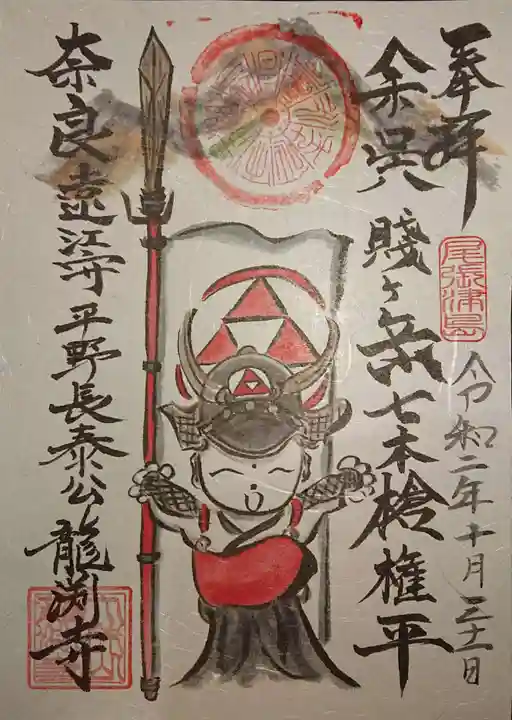 奉拝
尾張津島
令和二年十月三十一日
余呉
賤ヶ岳七本槍権平
奈良遠江守平野長泰公龍渕寺